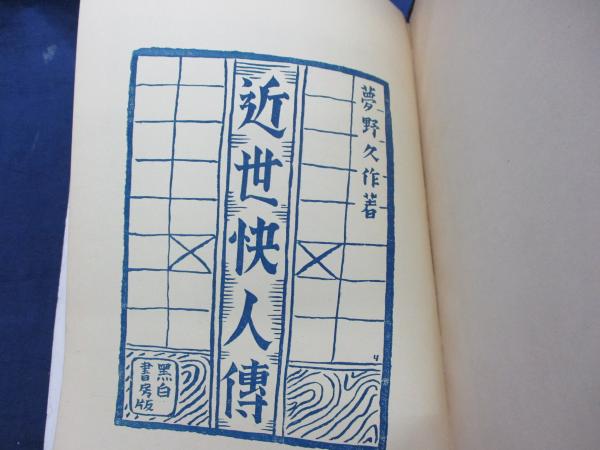 夢野久作著
近世快人傳
黑白
書房版